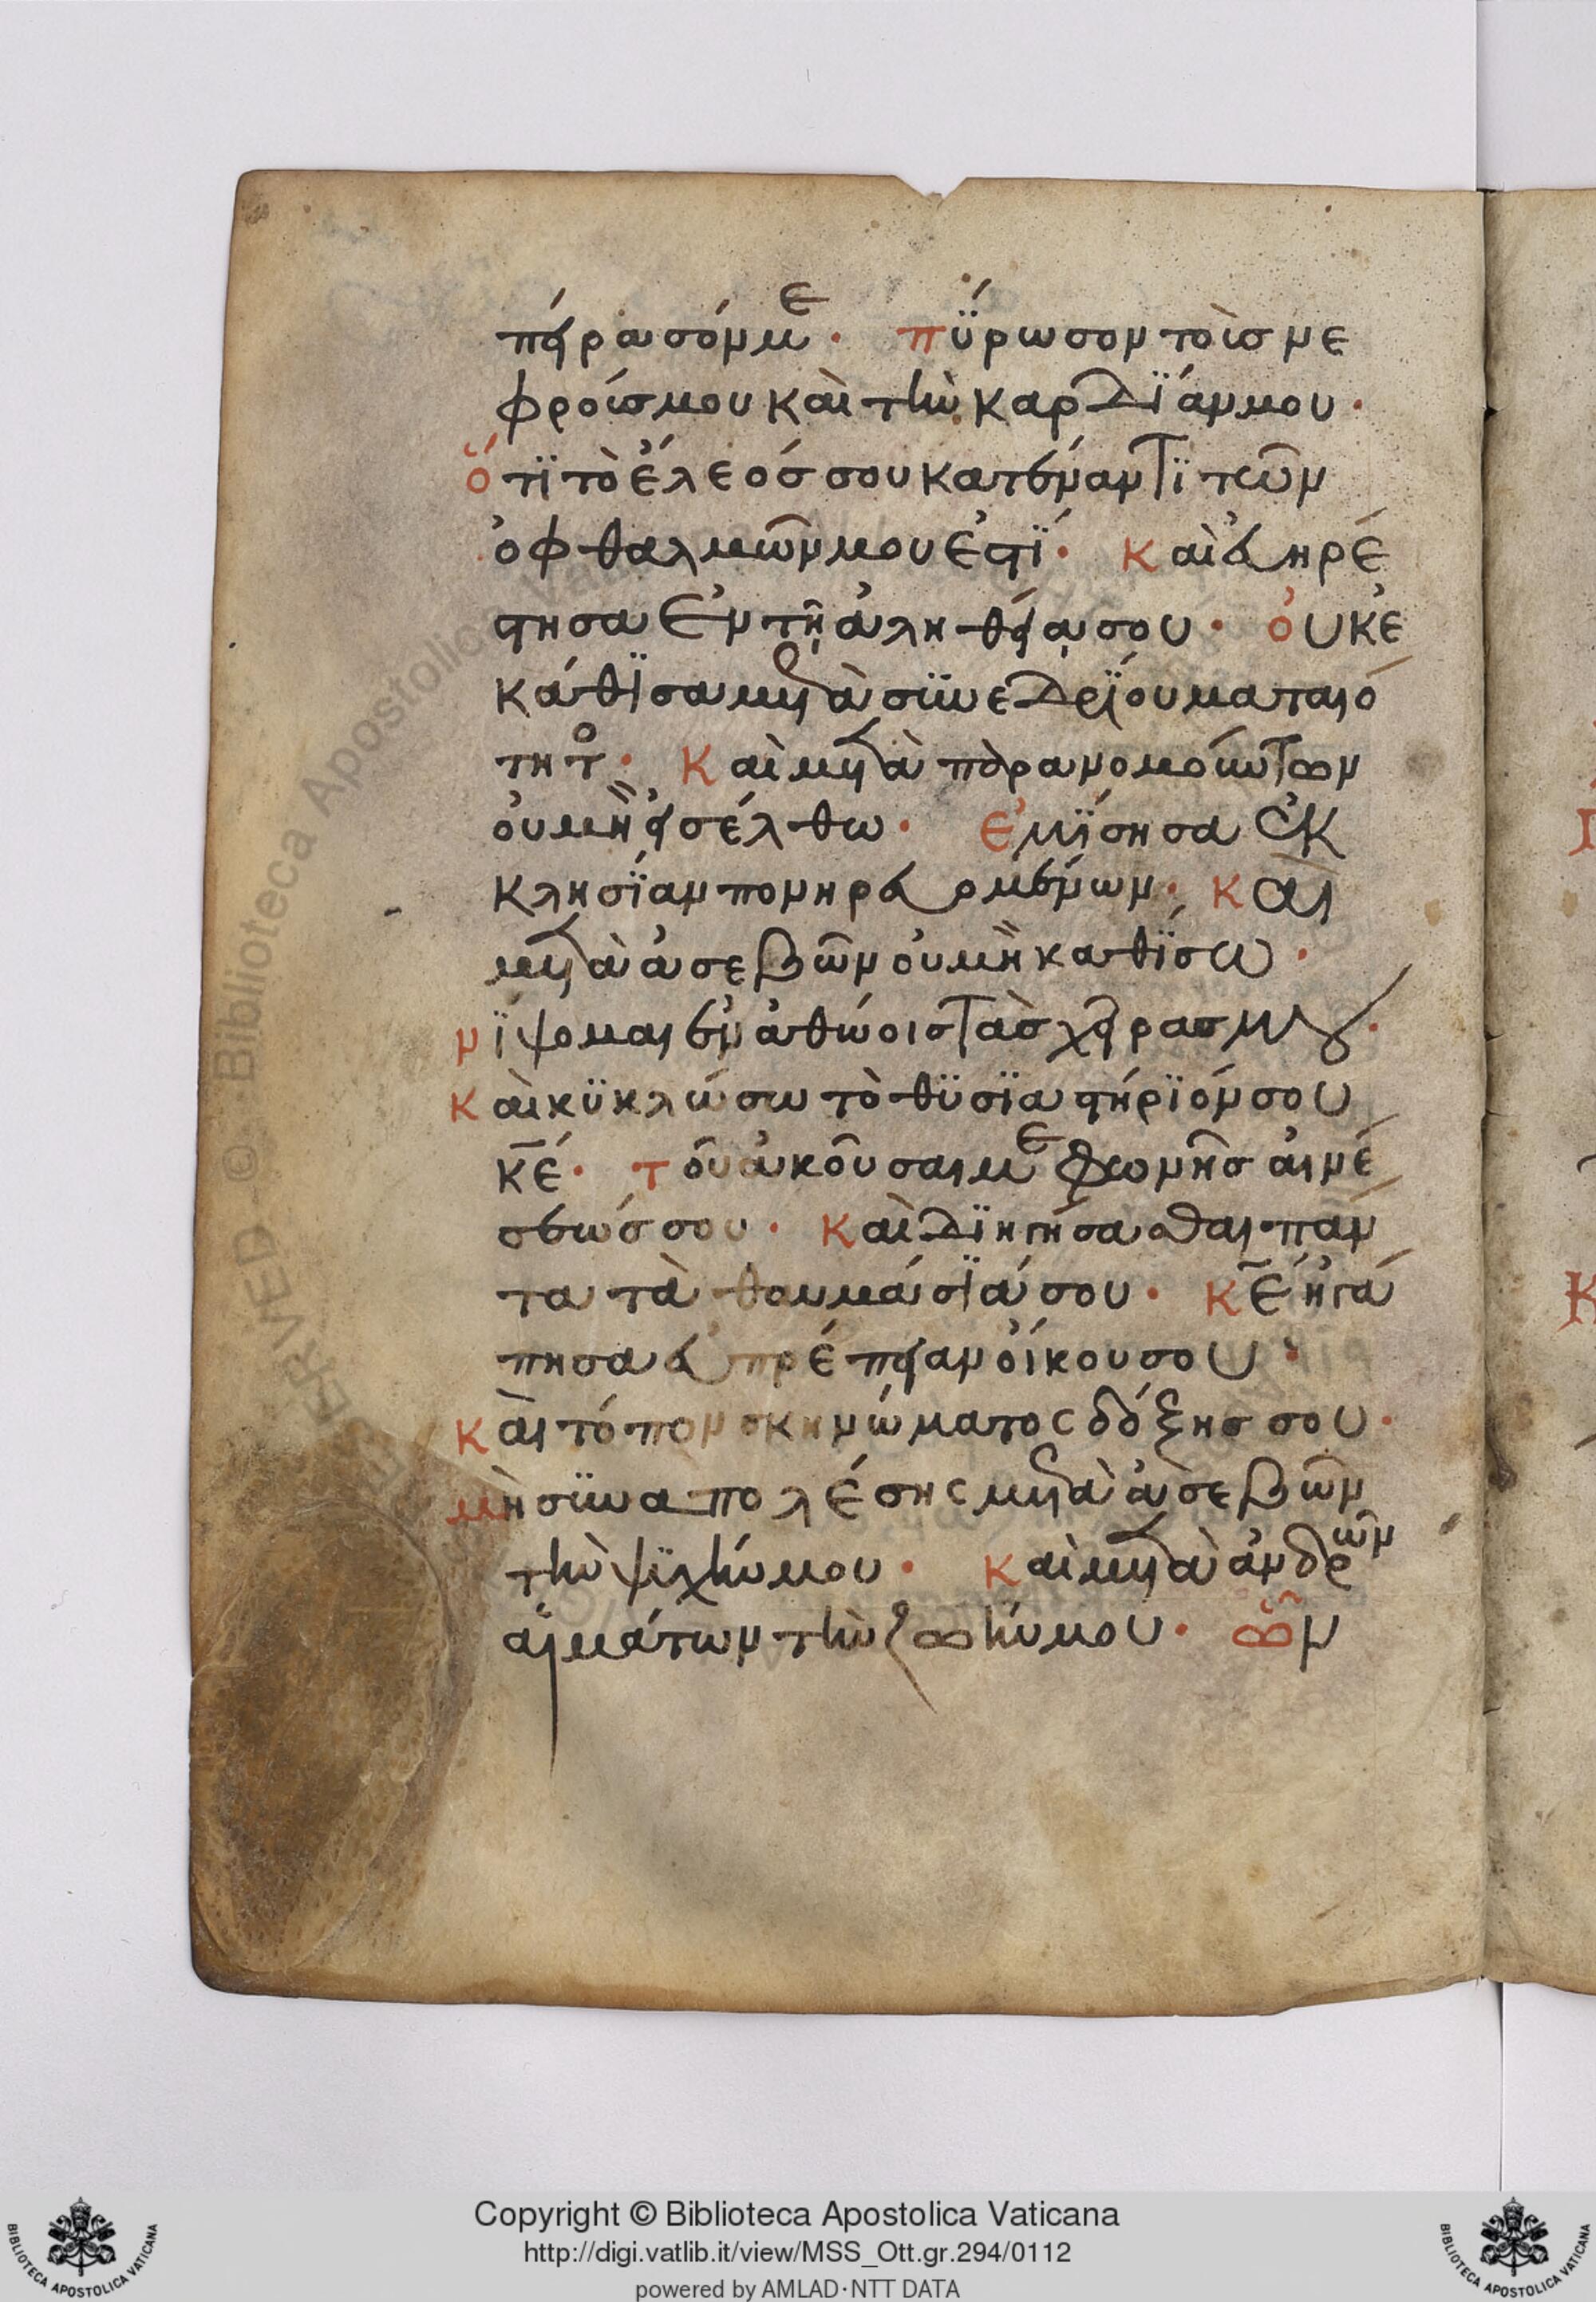 πείρασόν με · πΰρωσον τοὺσ νε
φρούσ μου καὶ τὴν καρδΐάν μου ·
ὅτϊ τὸ ἔλεόσ σου κατέναντϊ τῶν
ὀφθαλμῶν μου ἐστϊ · καὶ εὐηρέ
στησα ἐν τῇ ἀληθεία σου · οὐκ ἐ
κάθϊσα μετὰ σϋνεδρΐου ματαιό
τητο · καὶ μετὰ παρανομούντων
οὐ μὴ εἰσέλθω · ἐμΐσησα ἐκ
κλησΐαν πονηρευομένων · καὶ
μετὰ ἀσεβῶν οὐ μὴ καθΐσω ·
νΐψομαι ἐν ἀθώοισ τὰσ χεῖρασ μου ·
καὶ κϋκλώσω τὸ θϋσϊαστήρϊόν σου
κε · τοῦ ἀκοῦσαι με φωνῆσ αἰνέ
σεώσ σου · καὶ δϊηγήσασθαι πάν
τα τὰ θαυμάσϊά σου · κε ἠγά
πησα εὐπρέπειαν οἴκου σου ·
καὶ τόπον σκηνώματος δόξησ σου ·
μὴ σϋναπολέσης μετὰ ἀσεβῶν
τὴν ψϋχήν μου · καὶ μετὰ ἀνδρῶν
αἱμάτων τὴν ζωήν μου · ὧν
Copyright © Biblioteca Apostolica Vaticana
http://digi.vatlib.it/view/MSS_Ott.gr.294/0112
powered by AMLAD·NTT DATA
BIBLIOTECA APOSTOLICA VATICANA
BIBLIOTECA APOSTOLICA VATICANA